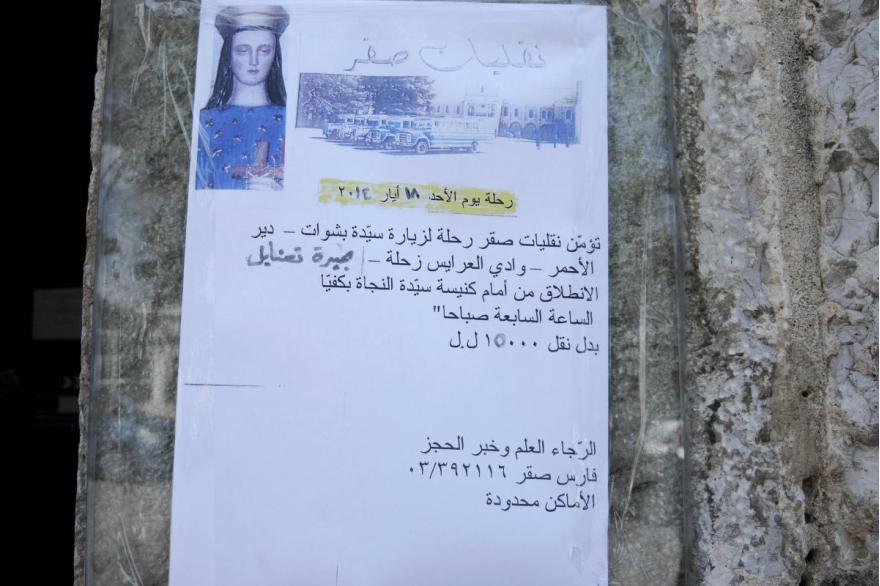 نقليات صقر
رحلة يوم الأحد ١٨ أيار ٢٠١٤
تؤمّن نقليات صقر رحلة لزيارة سيّدة بشوات – دير
الأحمر – وادي العرايس زحلة – بحيرة تعنايل
الانطلاق من أمام كنيسة سيّدة النجاة بكفيّا
الساعة السابعة صباحا"
بدل نقل ١٥٠٠٠ ل.ل
الرّجاء العلم وخبر الحجز
فارس صقر ٠٣/٣٩٢١١٦
الأماكن محدودة